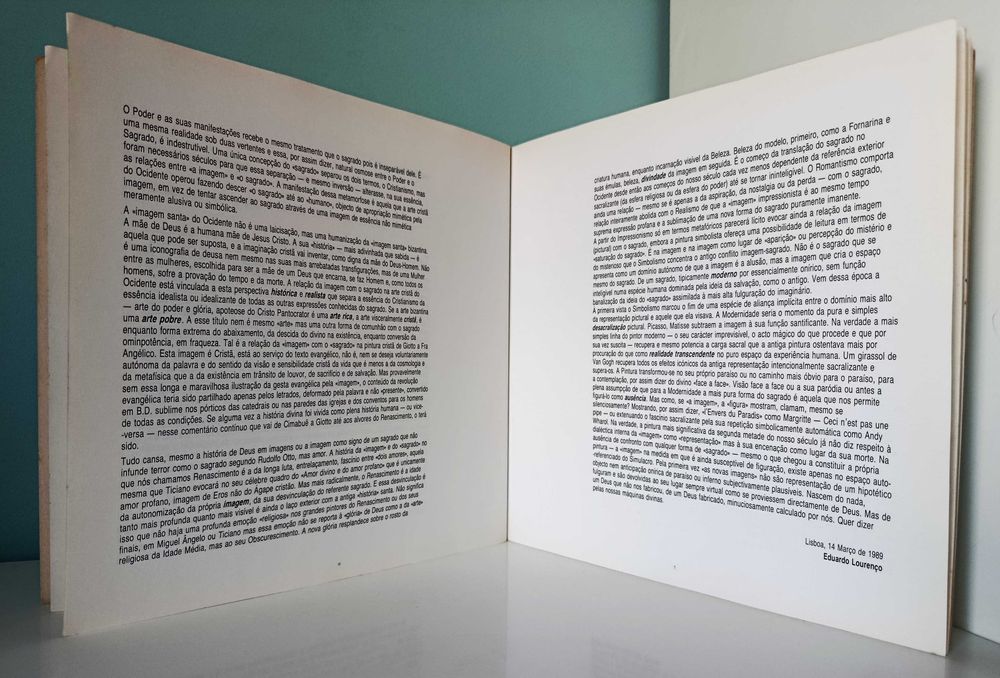 O Poder e as suas manifestações recebe o mesmo tratamento que o sagrado pois é inseparável dele. É
uma mesma realidade sob duas vertentes e essa, por assim dizer, natural osmose entre o Poder e o
Sagrado, é indestrutível. Uma única concepção do «sagrado» separou os dois termos, o Cristianismo, mas
foram necessários séculos para que essa separação — e mesmo inversão — alterasse, na arte cristã
as relações entre «a imagem» e «o sagrado». A manifestação dessa metamorfose é aquela que a arte cristã
do Ocidente operou fazendo descer «o sagrado» até ao «humano», objecto de apropriação mimética pela
imagem, em vez de tentar ascender ao sagrado através de uma imagem de essência não mimética
meramente alusiva ou simbólica.
A «imagem santa» do Ocidente não é uma laicisação, mas uma humanização da «imagem santa» bizantina.
A mãe de Deus é a humana mãe de Jesus Cristo. A sua «história» — mais adivinhada que sabida — é
aquela que pode ser suposta, e a imaginação cristã vai inventar, como digna da mãe do Deus-Homem. Não
é uma iconografia de deusa nem mesmo nas suas mais arrebatadas transfigurações, mas de uma Mulher
entre as mulheres, escolhida para ser a mãe de um Deus que encarna, se faz Homem e, como todos os
homens, sofre a provação do tempo e da morte. A relação da imagem com o sagrado na arte cristã do
Ocidente está vinculada a esta perspectiva histórica e realista que separa a essência do Cristianismo da
essência idealista ou idealizante de todas as outras expressões conhecidas do sagrado. Se a arte bizantina
— arte do poder e glória, apoteose do Cristo Pantocrator é uma arte rica, a arte visceralmente cristã, é
uma arte pobre. A esse título nem é mesmo «arte» mas uma outra forma de comunhão com o sagrado
enquanto forma extrema do abaixamento, da descida do divino na existência, enquanto conversão da
ominpotência, em fraqueza. Tal é a relação da «imagem» com o «sagrado» na pintura cristã de Giotto a Fra
Angélico. Esta imagem é Cristã, está ao serviço do texto evangélico, não é, nem se deseja voluntariamente
autónoma da palavra e do sentido da visão e sensibilidade cristã da vida que é menos a da cosmologia e
da metafísica que a da existência em trânsito de louvor, de sacrifício e de salvação. Mas provavelmente
sem essa longa e maravilhosa ilustração da gesta evangélica pela «imagem», o conteúdo da revolução
evangélica teria sido partilhado apenas pelos letrados, deformado pela palavra e não «presente», convertido
em B.D. sublime nos pórticos das catedrais ou nas paredes das igrejas e dos conventos para os homens
de todas as condições. Se alguma vez a história divina foi vivida como plena história humana — ou vice-
-versa — nesse comentário contínuo que vai de Cimabuè a Giotto até aos alvores do Renascimento, o terá
sido.
Tudo cansa, mesmo a história de Deus em imagens ou a imagem como signo de um sagrado que não
infunde terror como o sagrado segundo Rudolfo Otto, mas amor. A história da «imagem» e do «sagrado» no
que nós chamamos Renascimento é a da longa luta, entrelaçamento, fascínio entre «dois amores», aquela
mesma que Ticiano evocará no seu célebre quadro do «Amor divino e do amor profano» que é unicamente
amor profano, imagem de Eros não do Ágape cristão. Mas mais radicalmente, o Renascimento é a idade
da autonomização da própria imagem, da sua desvinculação do referente sagrado. E essa desvinculação é
tanto mais profunda quanto mais visível é ainda o laço exterior com a antiga «história» santa. Não significa
isso que não haja uma profunda emoção «religiosa» nos grandes pintores do Renascimento ou dos seus
finais, em Miguel Ângelo ou Ticiano mas essa emoção não se reporta à «glória» de Deus como a da «arte»
religiosa da Idade Média, mas ao seu Obscurescimento. A nova glória resplandece sobre o rosto da
criatura humana, enquanto incarnação visível da Beleza. Beleza do modelo, primeiro, como a Fornarina e
suas émulas, beleza, divindade da imagem em seguida. É o começo da translação do sagrado no
Ocidente desde então aos começos do nosso século cada vez menos dependente da referência exterior
sacralizante (da esfera religiosa ou da esfera do poder) até se tornar ininteligível. O Romantismo comporta
ainda uma relação — mesmo se é apenas a da aspiração, da nostalgia ou da perda — com o sagrado,
relação inteiramente abolida com o Realismo de que a «imagem» impressionista é ao mesmo tempo
suprema expressão profana e a sublimação de uma nova forma do sagrado puramente imanente.
A partir do Impressionismo só em termos metafóricos parecerá lícito evocar ainda a relação da imagem
(pictural) com o sagrado, embora a pintura simbolista ofereça uma possibilidade de leitura em termos de
«saturação do sagrado». É na imagem e na imagem como lugar de «aparição» ou percepção do mistério e
do misterioso que o Simbolismo concentra o antigo conflito imagem-sagrado. Não é o sagrado que se
apresenta como um domínio autónomo de que a imagem é a alusão, mas a imagem que cria o espaço
mesmo do sagrado. De um sagrado, tipicamente moderno por essencialmente onírico, sem função
inteligível numa espécie humana dominada pela ideia da salvação, como o antigo. Vem dessa época a
banalização da ideia do «sagrado» assimilada à mais alta fulguração do imaginário.
À primeira vista o Simbolismo marcou o fim de uma espécie de aliança implícita entre o domínio mais alto
da representação pictural e aquele que ela visava. A Modernidade seria o momento da pura e simples
desacralização pictural. Picasso, Matisse subtraem a imagem à sua função santificante. Na verdade a mais
simples linha do pintor moderno — o seu carácter imprevisível, o acto mágico do que procede e que por
sua vez suscita — recupera e mesmo potencia a carga sacral que a antiga pintura ostentava mais por
procuração do que como realidade transcendente no puro espaço da experiência humana. Um girassol de
Van Gogh recupera todos os efeitos icónicos da antiga representação intencionalmente sacralizante e
supera-os. A Pintura transformou-se no seu próprio paraíso ou no caminho mais óbvio para o paraíso, para
a contemplação, por assim dizer do divino «face a face». Visão face a face ou a sua paródia ou antes a
plena assumpção de que para a Modernidade a mais pura forma do sagrado é aquela que nos permite
figurá-lo como ausência. Mas como, se «a imagem», a «figura» mostram, clamam, mesmo se
silenciosamente? Mostrando, por assim dizer, «l'Envers du Paradis» como Margritte — Ceci n'est pas une
pipe — ou extenuando o fascínio sacralizante pela sua repetição simbolicamente automática como Andy
Wharol. Na verdade, a pintura mais significativa da segunda metade do nosso século já não diz respeito à
dialéctica interna da «imagem» como «representação» mas à sua encenação como lugar da sua morte. Na
ausência de confronto com qualquer forma de «sagrado» — mesmo o que chegou a constituir a própria
pintura — a «imagem» na medida em que é ainda susceptível de figuração, existe apenas no espaço auto-
-referenciado do Simulacro. Pela primeira vez «as novas imagens» não são representação de um hipotético
objecto nem anticipação onírica de paraíso ou inferno subjectivamente plausíveis. Nascem do nada,
figuram e são devolvidas ao seu lugar sempre virtual como se proviessem directamente de Deus. Mas de
um Deus que não nos fabricou, de um Deus fabricado, minuciosamente calculado por nós. Quer dizer
pelas nossas máquinas divinas.
Lisboa, 14 Março de 1989
Eduardo Lourenço